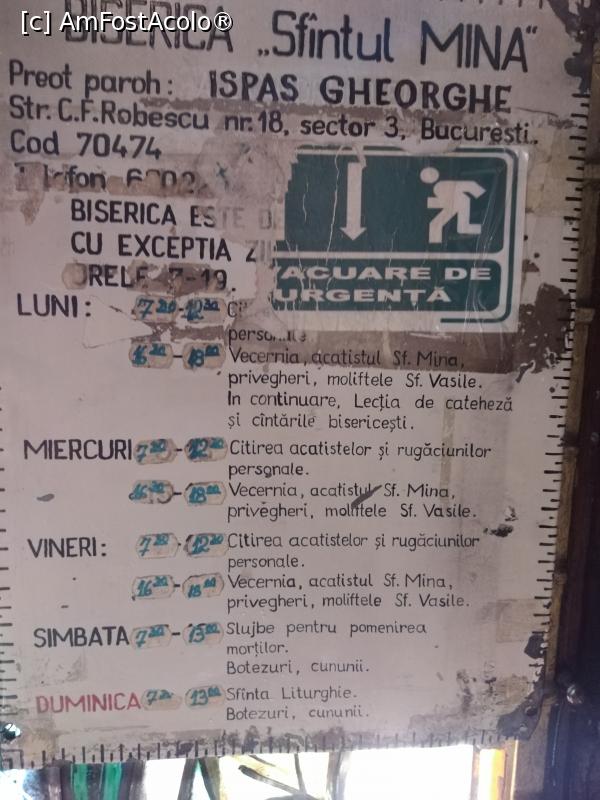 [c] AmFostAcolo®
BISERICA „Sfîntul MINA"
Preot paroh: ISPAS GHEORGHE
Str. C.F. Robescu nr. 18, sector 3, Bucureşti.
Cod 70474
BISERICA ESTE
CU EXCEPTIA
ORELE 7-19.
ACUARE DE
URGENŢĂ
LUNI: 7 30 - 12 30
personale
16 30 - 18 00 Vecernia, acatistul Sf. Mina,
privegheri, moliftele Sf. Vasile.
In continuare, Lecţia de cateheză
şi cîntările bisericeşti.
MIERCURI 7 30 - 12 30 Citirea acatistelor şi rugăciunilor
personale.
16 30 - 18 00 Vecernia, acatistul Sf. Mina,
privegheri, moliftele Sf. Vasile.
VINERI: 7 30 - 12 30 Citirea acatistelor şi rugăciunilor
personale.
16 30 - 18 00 Vecernia, acatistul Sf. Mina,
privegheri, moliftele Sf. Vasile.
SIMBATA 7 30 - 13 00 Slujbe pentru pomenirea
morţilor.
Botezuri, cununii.
DUMINICA 7 30 - 13 00 Sfînta Liturghie.
Botezuri, cununii.